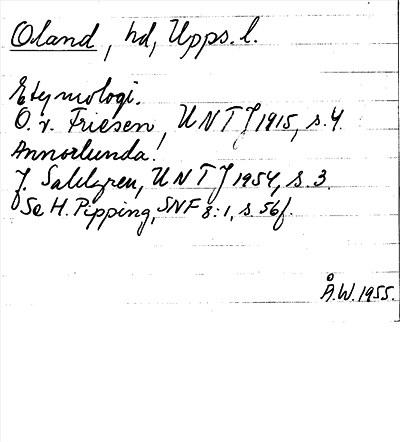 Oland, hd, Upps. l.
Etymologi.
O. v. Friesen, UNT J 1915, s. 4.
Annorlunda:
J. Sahlgren, UNT J 1954, s. 3.
Se H. Pipping, SNF 8:1, s. 56f.
Å.W. 1955.